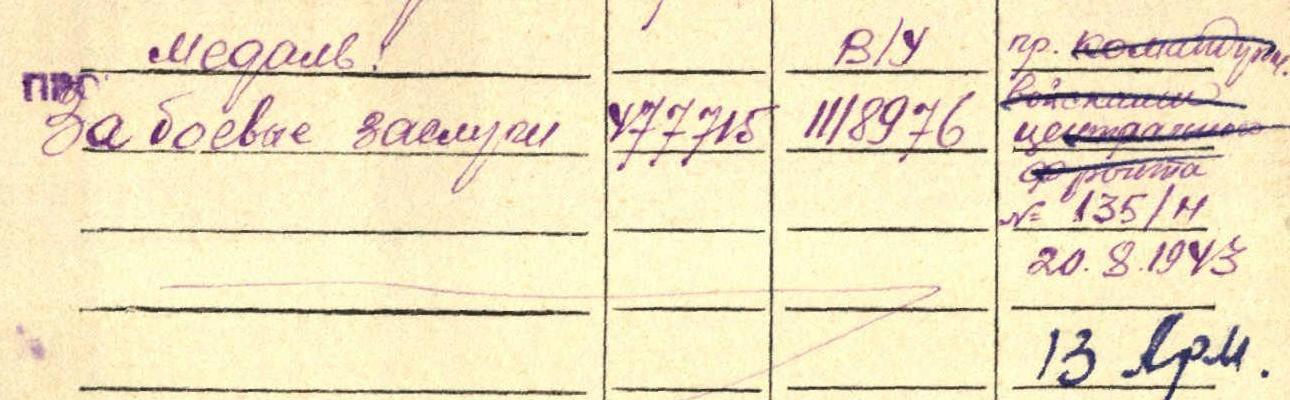 медаль: В/У пр. командующ.
ПРО войсками
За боевые заслуги 477715 111/8976 центрального
фронта
№ 135/н
20.8.1943
13 Арм.